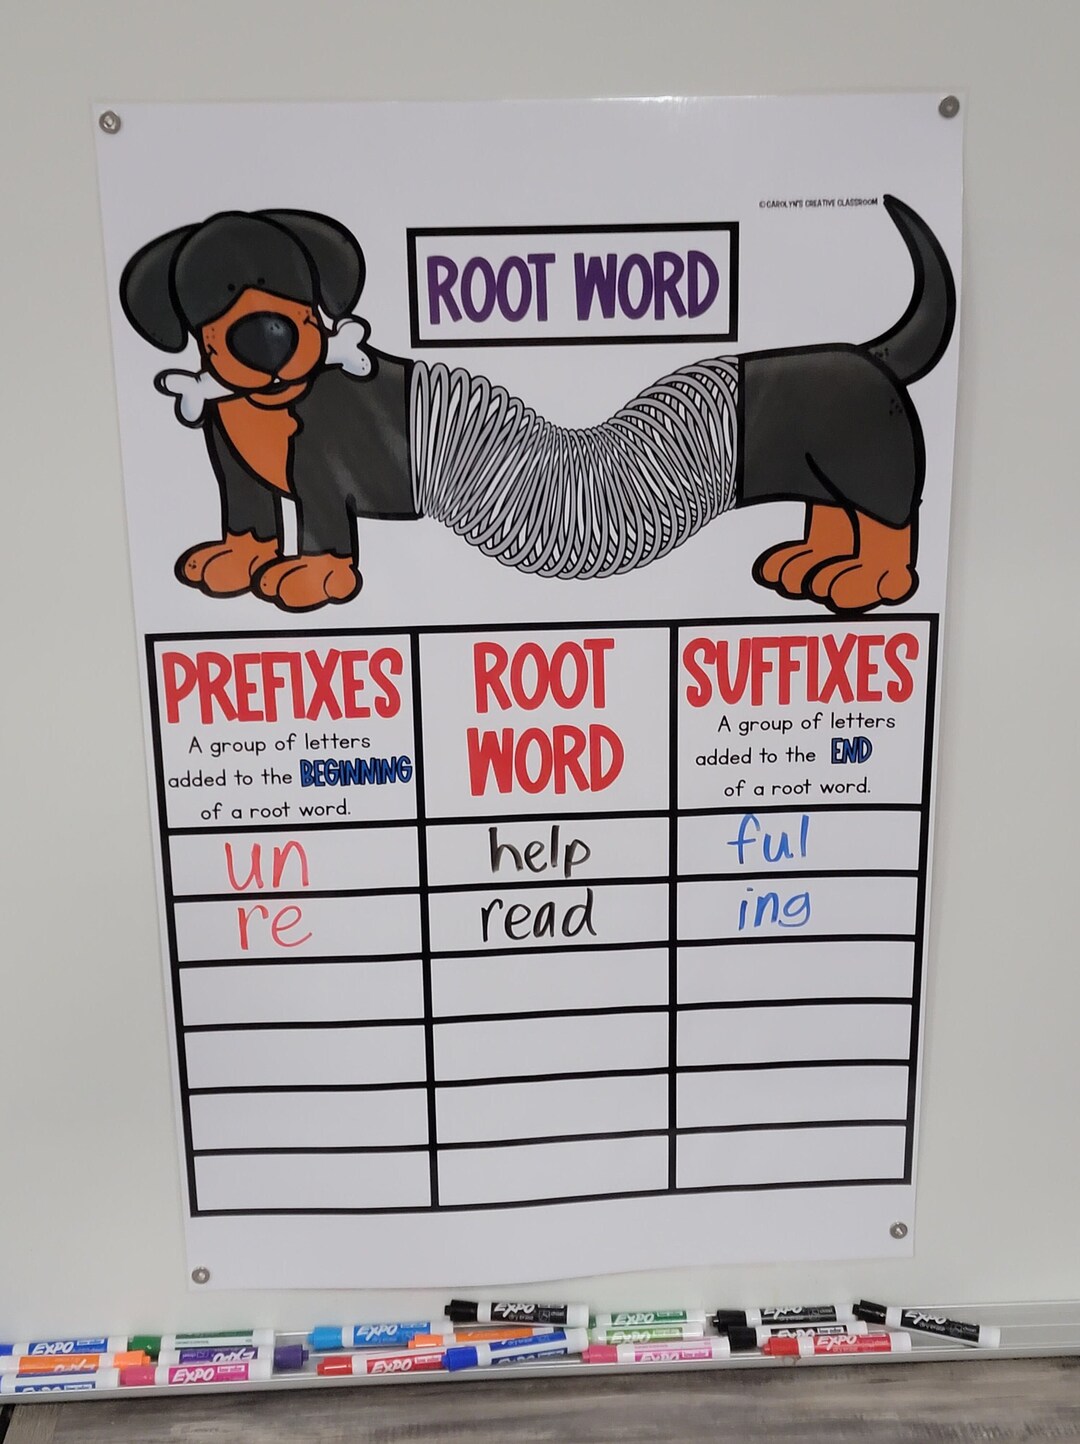 © CAROLYN'S CREATIVE CLASSROOM
ROOT WORD
PREFIXES
A group of letters
added to the BEGINNING
of a root word.
ROOT
WORD
SUFFIXES
A group of letters
added to the END
of a root word.
un
help
ful
re
read
ing
EXPO
EXPO
EXPO
EXPO
EXPO
EXPO
EXPO
EXPO
EXPO
EXPO
EXPO